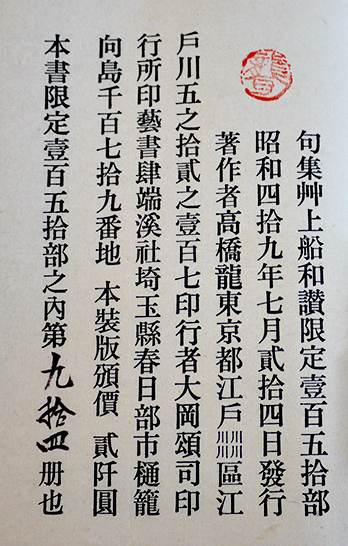 句集艸上船和讃限定壹百五拾部
昭和四拾九年七月貳拾四日發行
著作者髙橋龍東京都江戶川區江
戶川五之拾貳之壹百七印行者大岡頌司印
行所印藝書肆端溪社埼玉縣春日部市樋籠
向島千百七拾九番地 本裝版頒價 貳阡圓
本書限定壹百五拾部之內第九拾四册也